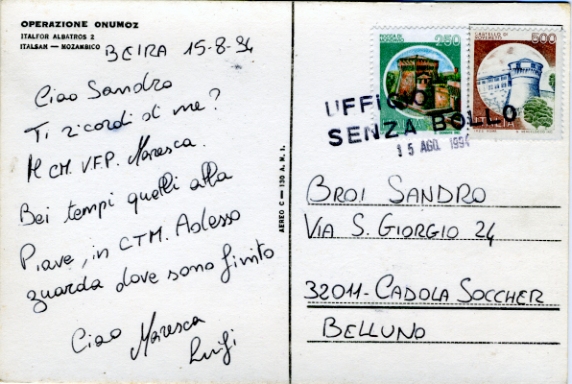 OPERAZIONE ONUMOZ
ITALFOR ALBATROS 2
ITALSAN — MOZAMBICO
BEIRA 15-8-94
Ciao Sandro
Ti ricordi di me?
Il CM. V.F.P. Maresca.
Bei tempi quelli alla
Piave, in CTM. Adesso
guarda dove sono finito
Ciao Maresca
Luigi
AEREO C — 130 A. M. I.
250
500
ITALIA
UFFICIO
SENZA BOLLO
15 AGO. 1994
BROI SANDRO
VIA S. GIORGIO 24
32011-CADOLA SOCCHER
BELLUNO